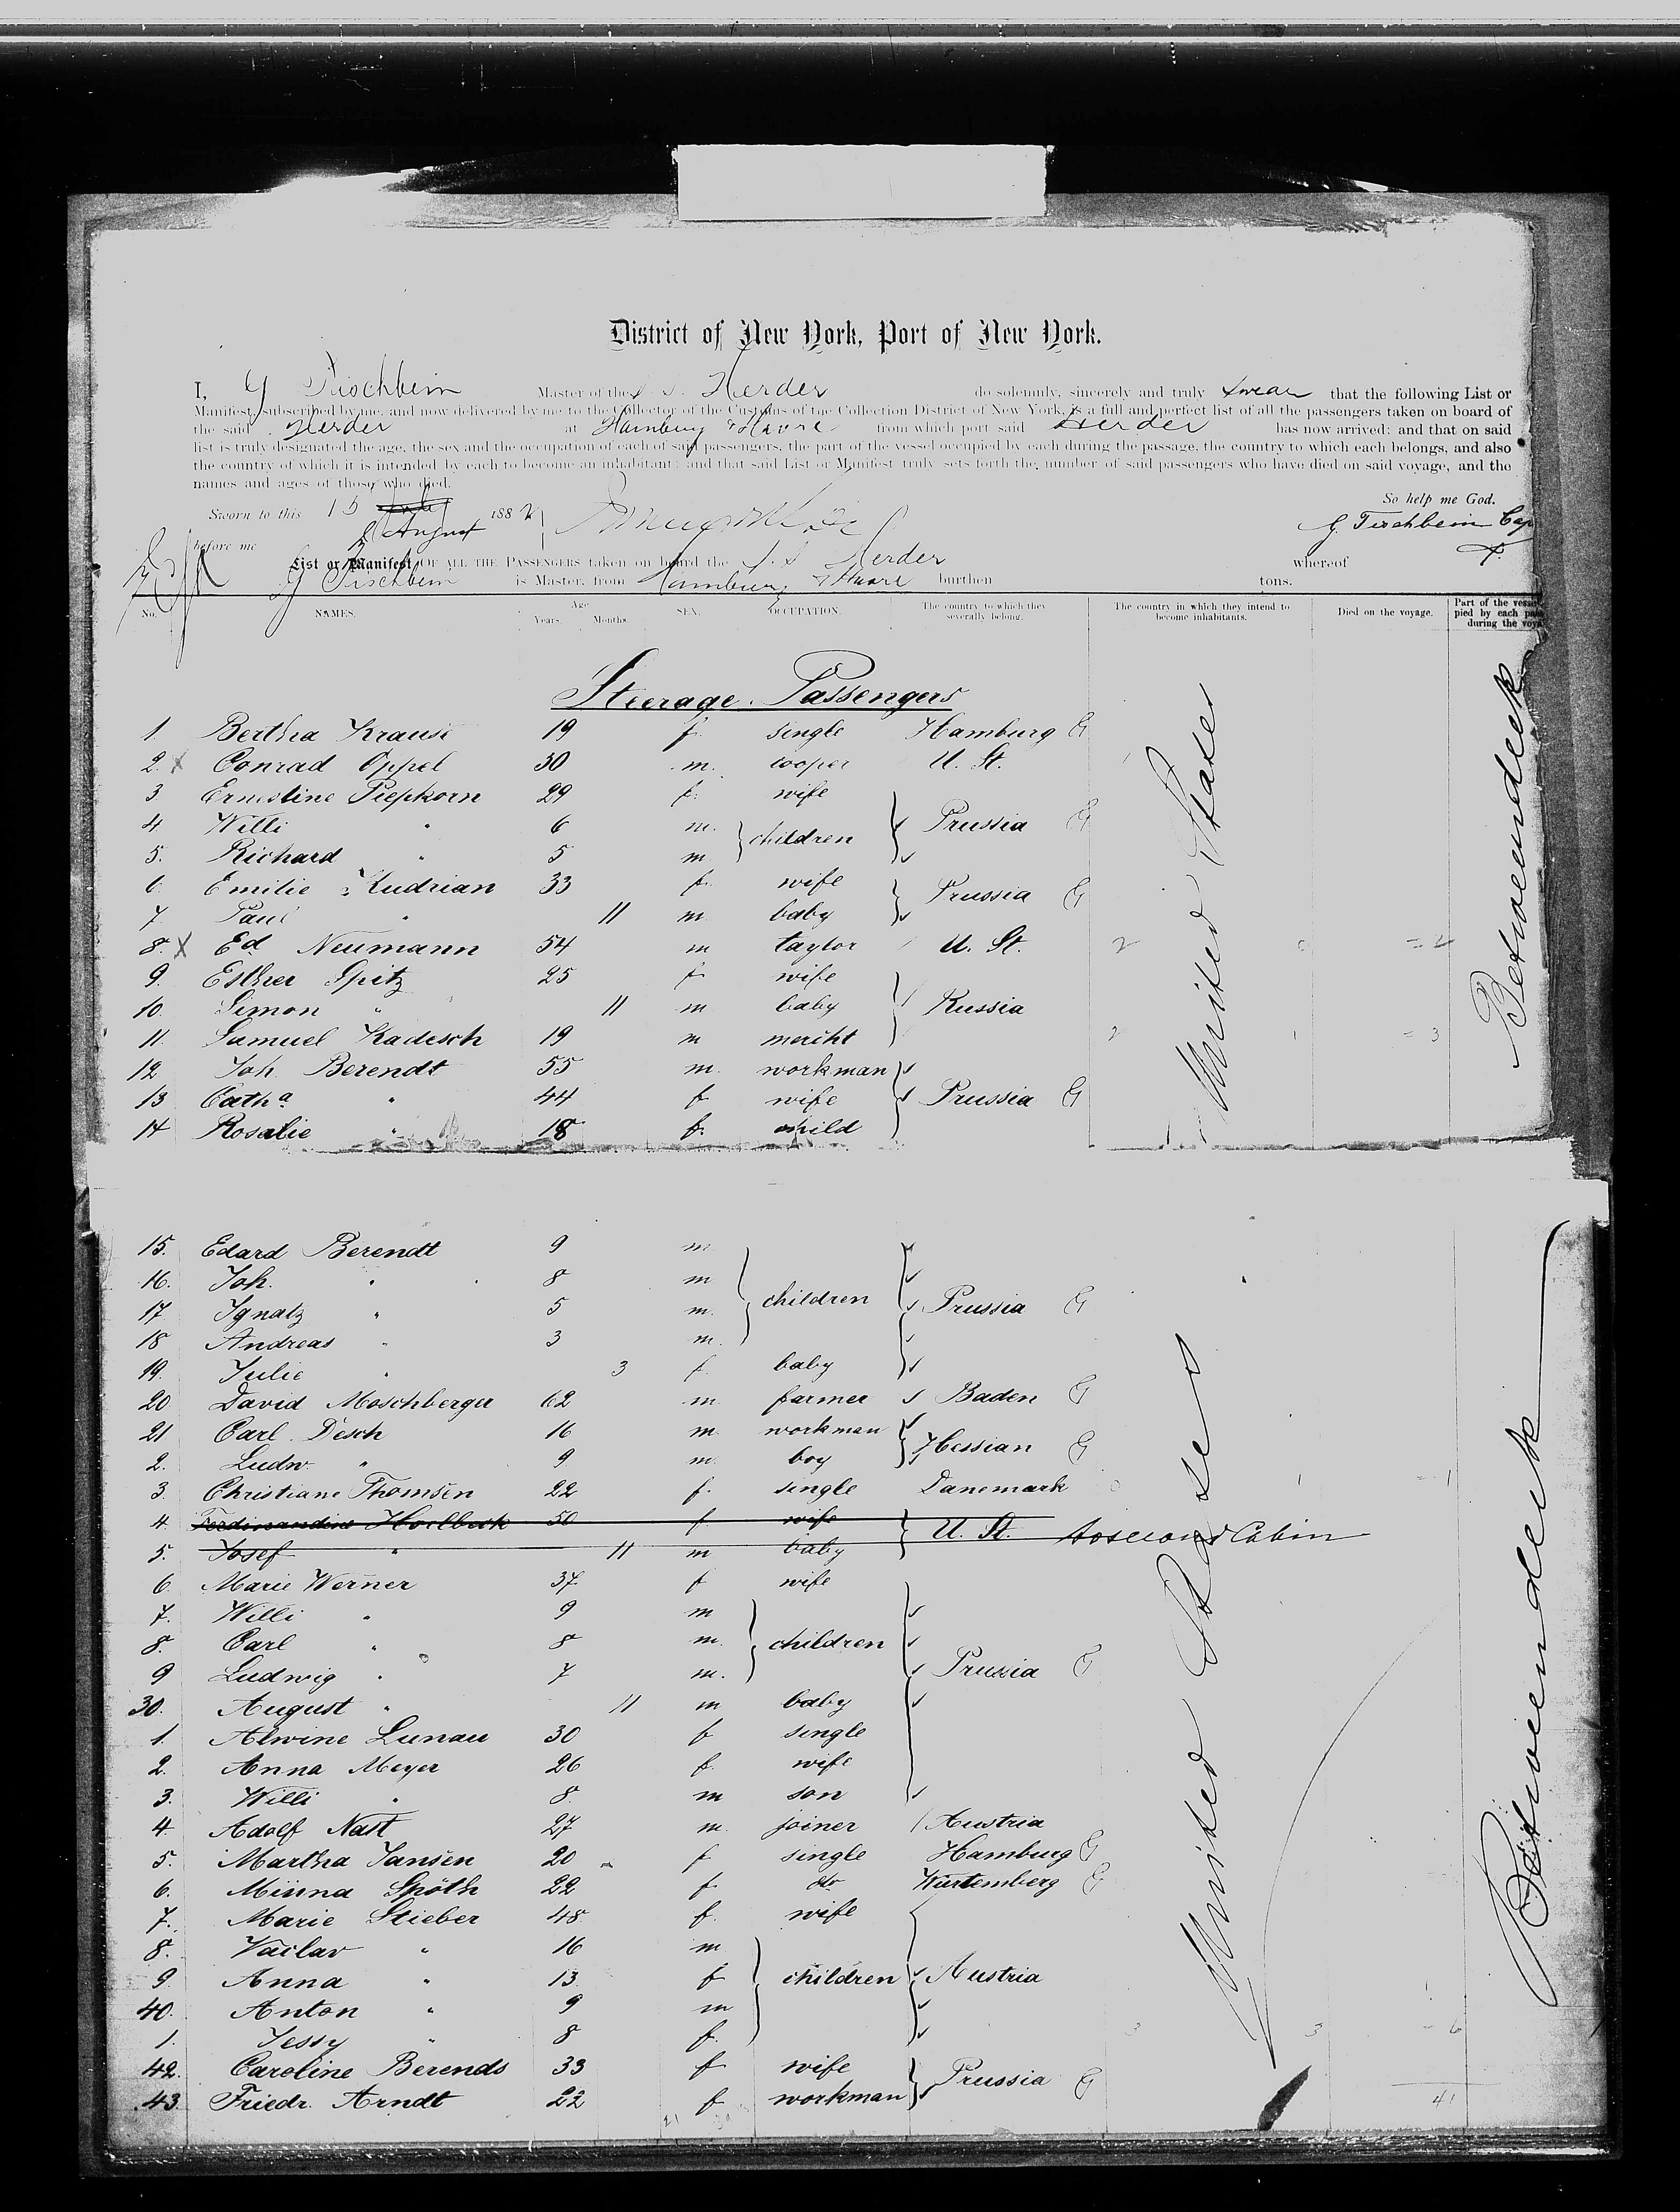 District of New York, Port of New York.
I, G Tischbein Master of the S. S. Herder do solemnly, sincerely and truly swear that the following List or
Manifest, subscribed by me, and now delivered by me to the Collector of the Customs of the Collection District of New York, is a full and perfect list of all the passengers taken on board of
the said Herder at Hamburg & Havre from which port said Herder has now arrived: and that on said
list is truly designated the age, the sex and the occupation of each of said passengers, the part of the vessel occupied by each during the passage, the country to which each belongs, and also
the country of which it is intended by each to become an inhabitant; and that said List or Manifest truly sets forth the number of said passengers who have died on said voyage, and the
names and ages of those who died.
So help me God.
Sworn to this 15 July August 1882
G. Tischbein Cap
before me
List or Manifest OF ALL THE PASSENGERS taken on board the S. S Herder whereof
G Tischbein is Master, from Hamburg & Havre burthen tons.
No. NAMES. Age Years. Months. SEX. OCCUPATION. The country to which they severally belong. The country in which they intend to become inhabitants. Died on the voyage. Part of the vessel pied by each during the
Steerage Passengers
1. Bertha Krause 19 f. single Hamburg G
2. X Conrad Oppel 30 m. cooper U. St.
3 Ernestine Piepkorn 29 f. wife
4. Willi " 6 m. children Prussia G
5. Richard " 5 m
6 Emilie Kudrian 33 f. wife Prussia G
7. Paul " 11 m baby
8. X Ed. Neumann 54 m taylor U. St. 2 = 2
9. Esther Spitz 25 f wife
10. Simon " 11 m baby Russia
11. Samuel Kadesch 19 m mercht 2 1 = 3
12 Joh. Berendt 55 m. workman
13 Catha. " 44 f wife Prussia G
14 Rosalie " 18 f. child
United States
Betweendeck
15. Edard Berendt 9 m
16. Joh. " 8 m
17 Ignatz " 5 m. children Prussia G
18 Andreas " 3 m.
19. Julie " 3 f. baby
20. David Moschberger 62 m farmer Baden G
21 Carl Desch 16 m workman Hessian G
2. Ludw. " 9 m. boy
3. Christiane Thomsen 22 f. single Danemark 1 = 1
4. Ferdinandine Hoelbeck 50 f wife U. St. to second Cabin
5. Josef " 11 m baby
6. Marie Werner 37 f wife
7. Willi " 9 m
8. Carl " 8 m. children
9 Ludwig " 7 m. Prussia G
30. August " 11 m baby
1. Alwine Lunau 30 f single
2. Anna Meyer 26 f. wife
3. Willi " 8 m son
4 Adolf Nast 27 m. joiner Austria
5. Martha Jansen 20 f single Hamburg G
6. Minna Späth 22 f do Würtemberg G
7. Marie Stieber 48 f. wife
8. Vaclav " 16 m
9 Anna " 13 f children Austria
40. Anton " 9 m
1. Jessy " 8 f. 3 3 = 6
42. Caroline Berends 33 f wife Prussia G
43. Friedr. Arndt 22 f workman 41
United States
Betweendeck